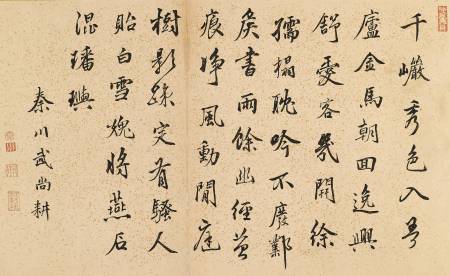 千巖秀色入吾
廬金馬朝回逸興
舒愛客幾開徐
孺榻耽吟不廢鄴
侯書雨餘幽徑苔
痕淨風動閒庭
樹影疎定有騷人
貽白雪媿將燕石
混璠璵
秦川武尚耕